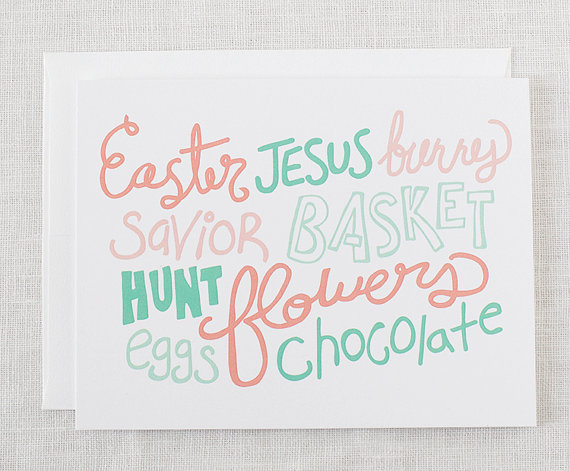 Easter JESUS bunny
SAVIOR BASKET
HUNT flowers
eggs chocolate